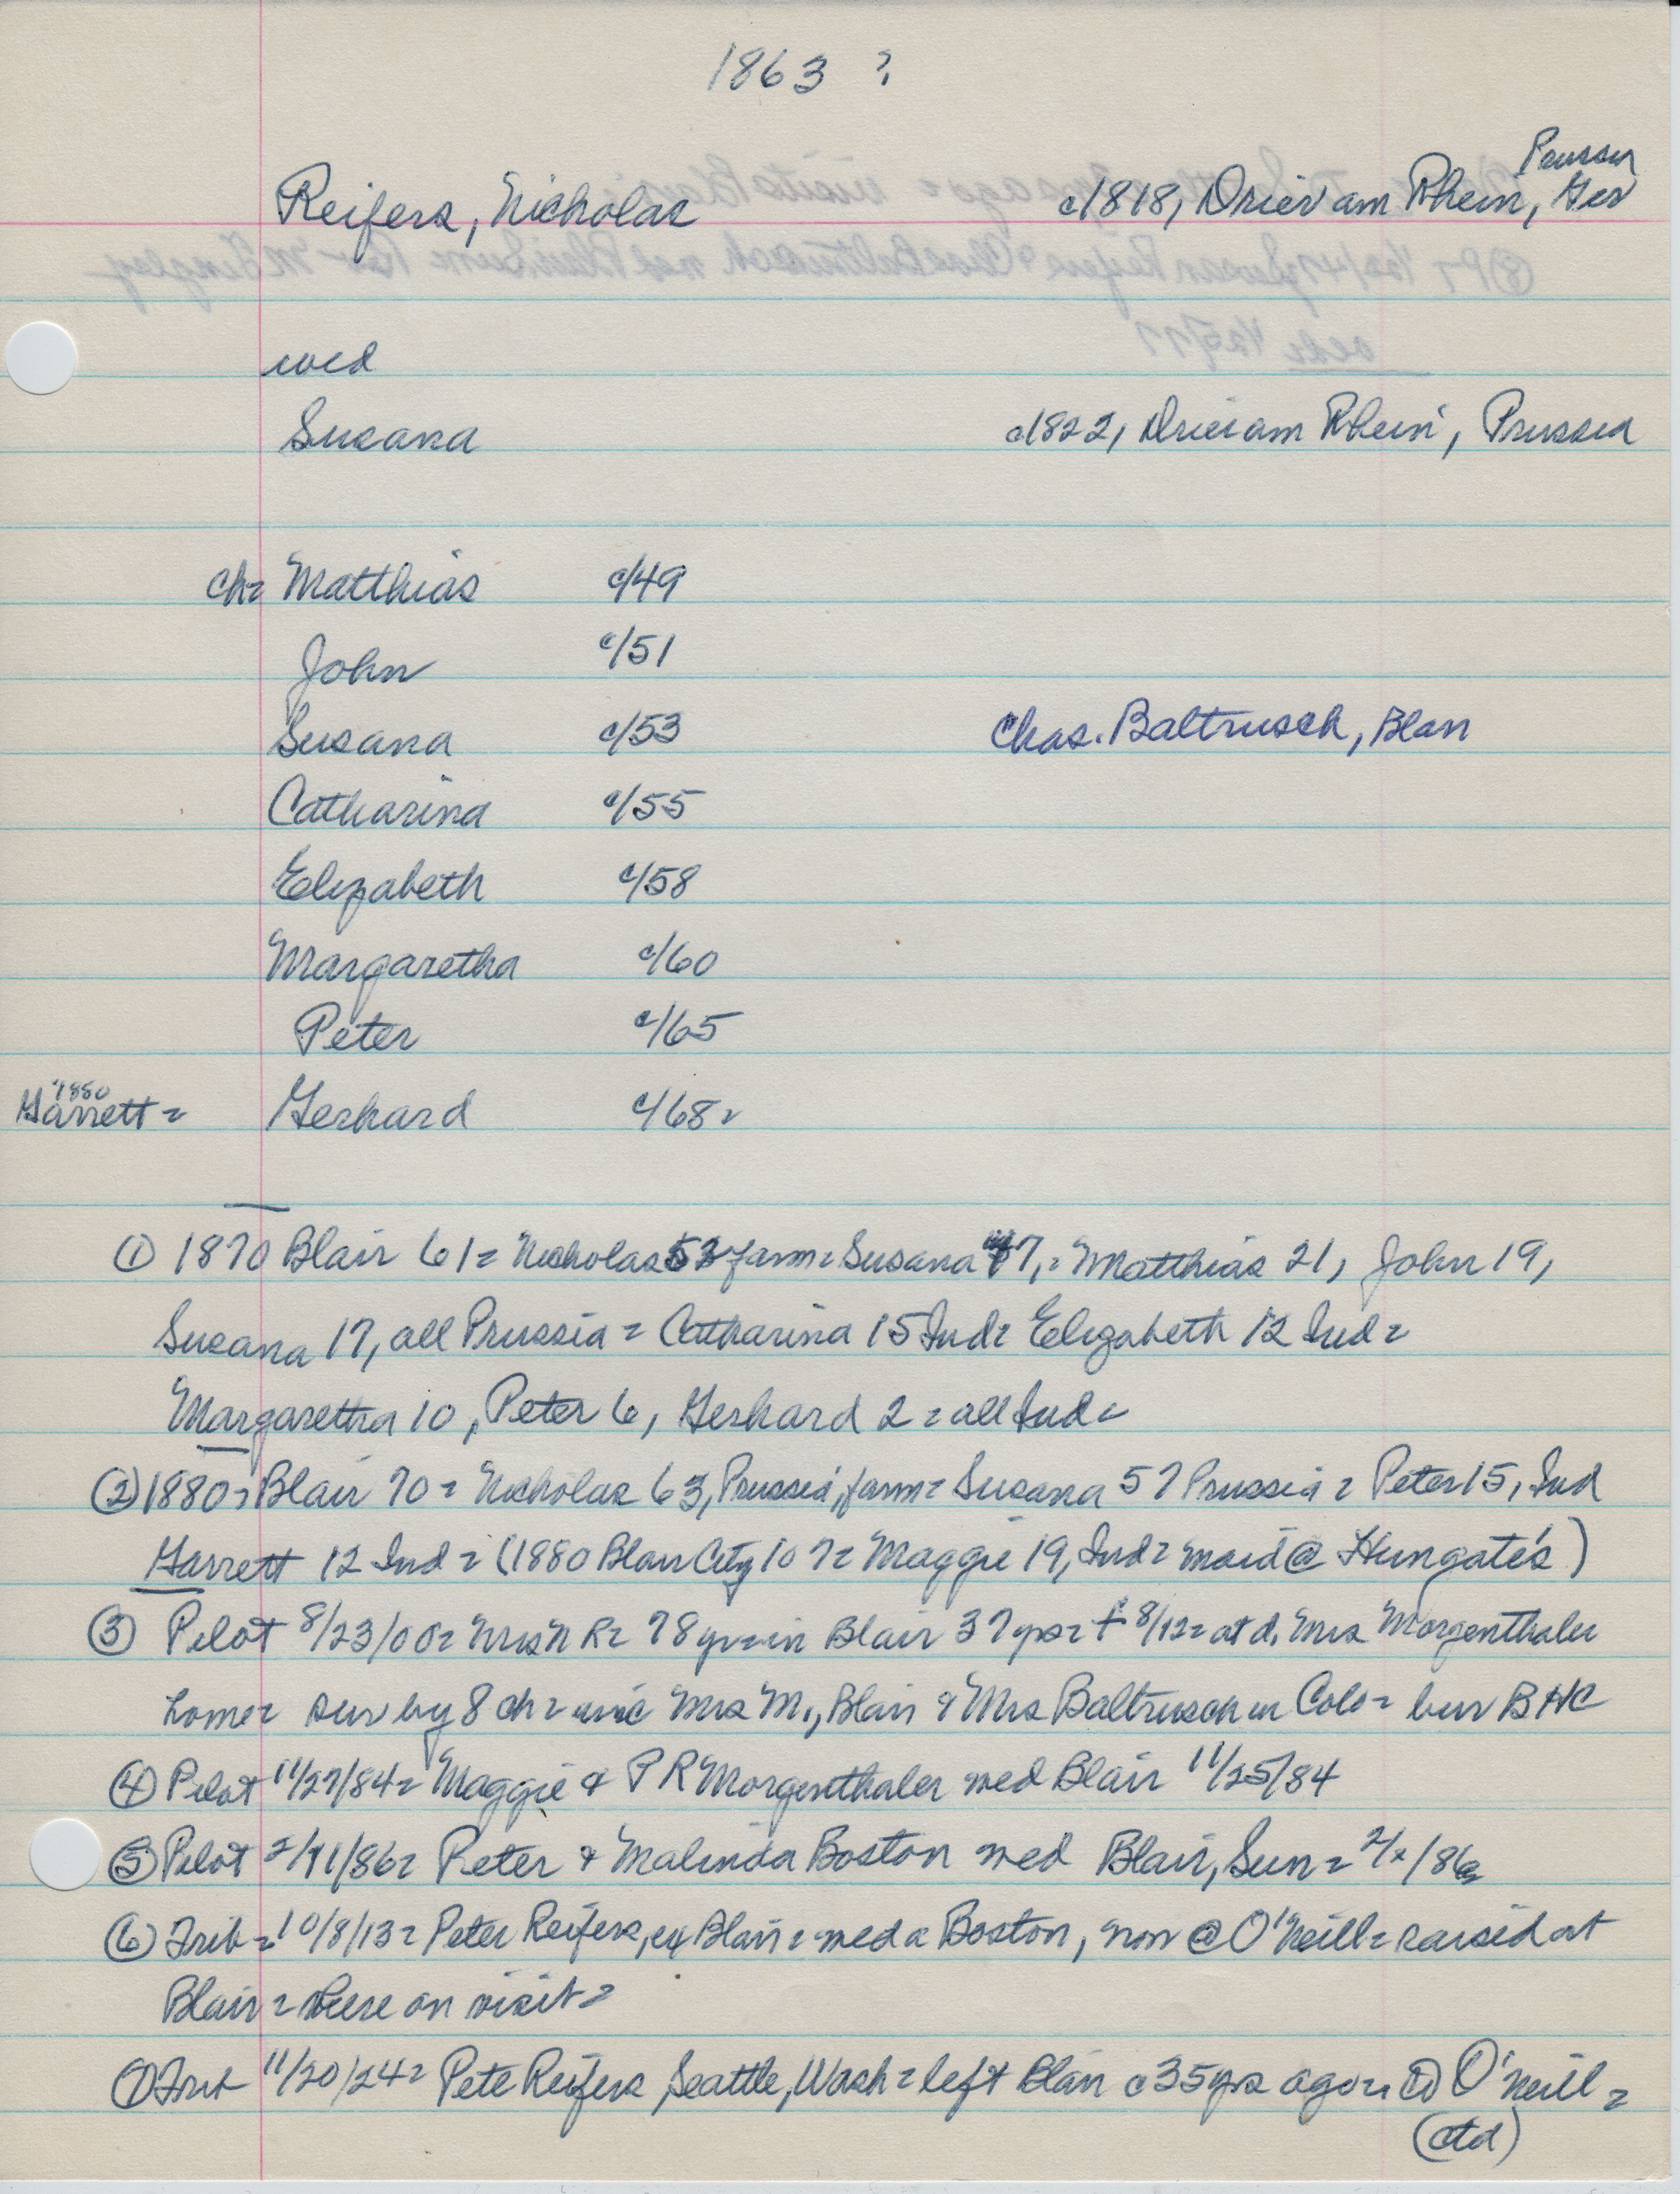 1863 ?
Prussia
Reifers, Nicholas c1818, Drier am Rhein, Ger
wed
Susana c1822, Drier am Rhein, Prussia
ch= Matthias c/49
John c/51
Susana c/53 Chas. Baltrusch, Blair
Catharina c/55
Elizabeth c/58
Margaretha c/60
Peter c/65
1880
Garrett = Gerhard c/68=
① 1870 Blair 61= Nicholas 52 farm= Susana 47,= Matthias 21, John 19,
Susana 17, all Prussia = Catharina 15 Ind= Elizabeth 12 Ind=
Margaretha 10, Peter 6, Gerhard 2 = all Ind=
② 1880= Blair 70= Nicholas 63, Prussia, farm= Susana 57 Prussia = Peter 15, Ind
Garrett 12 Ind = (1880 Blair City 107= Maggie 19, Ind= maid @ Hungate's)
③ Pilot 8/23/00= Mrs N R= 78 yr= in Blair 37 yrs= † 8/12= at d, Mrs Morgenthaler
home= sur by 8 ch= inc Mrs M., Blair & Mrs Baltrusch in Colo= bur BHC
④ Pilot 11/27/84= Maggie & P R Morgenthaler wed Blair 11/25/84
⑤ Pilot 2/11/86= Peter & Malinda Boston wed Blair, Sun= 2/ /86
⑥ Trib= 10/8/13= Peter Reifers, ex Blair= wed a Boston, now @ O'Neill= raised at
Blair= here on visit=
⑦ Trib 11/20/24= Pete Reifers, Seattle, Wash= left Blair c35 yrs ago= @ O'Neill=
(ctd)